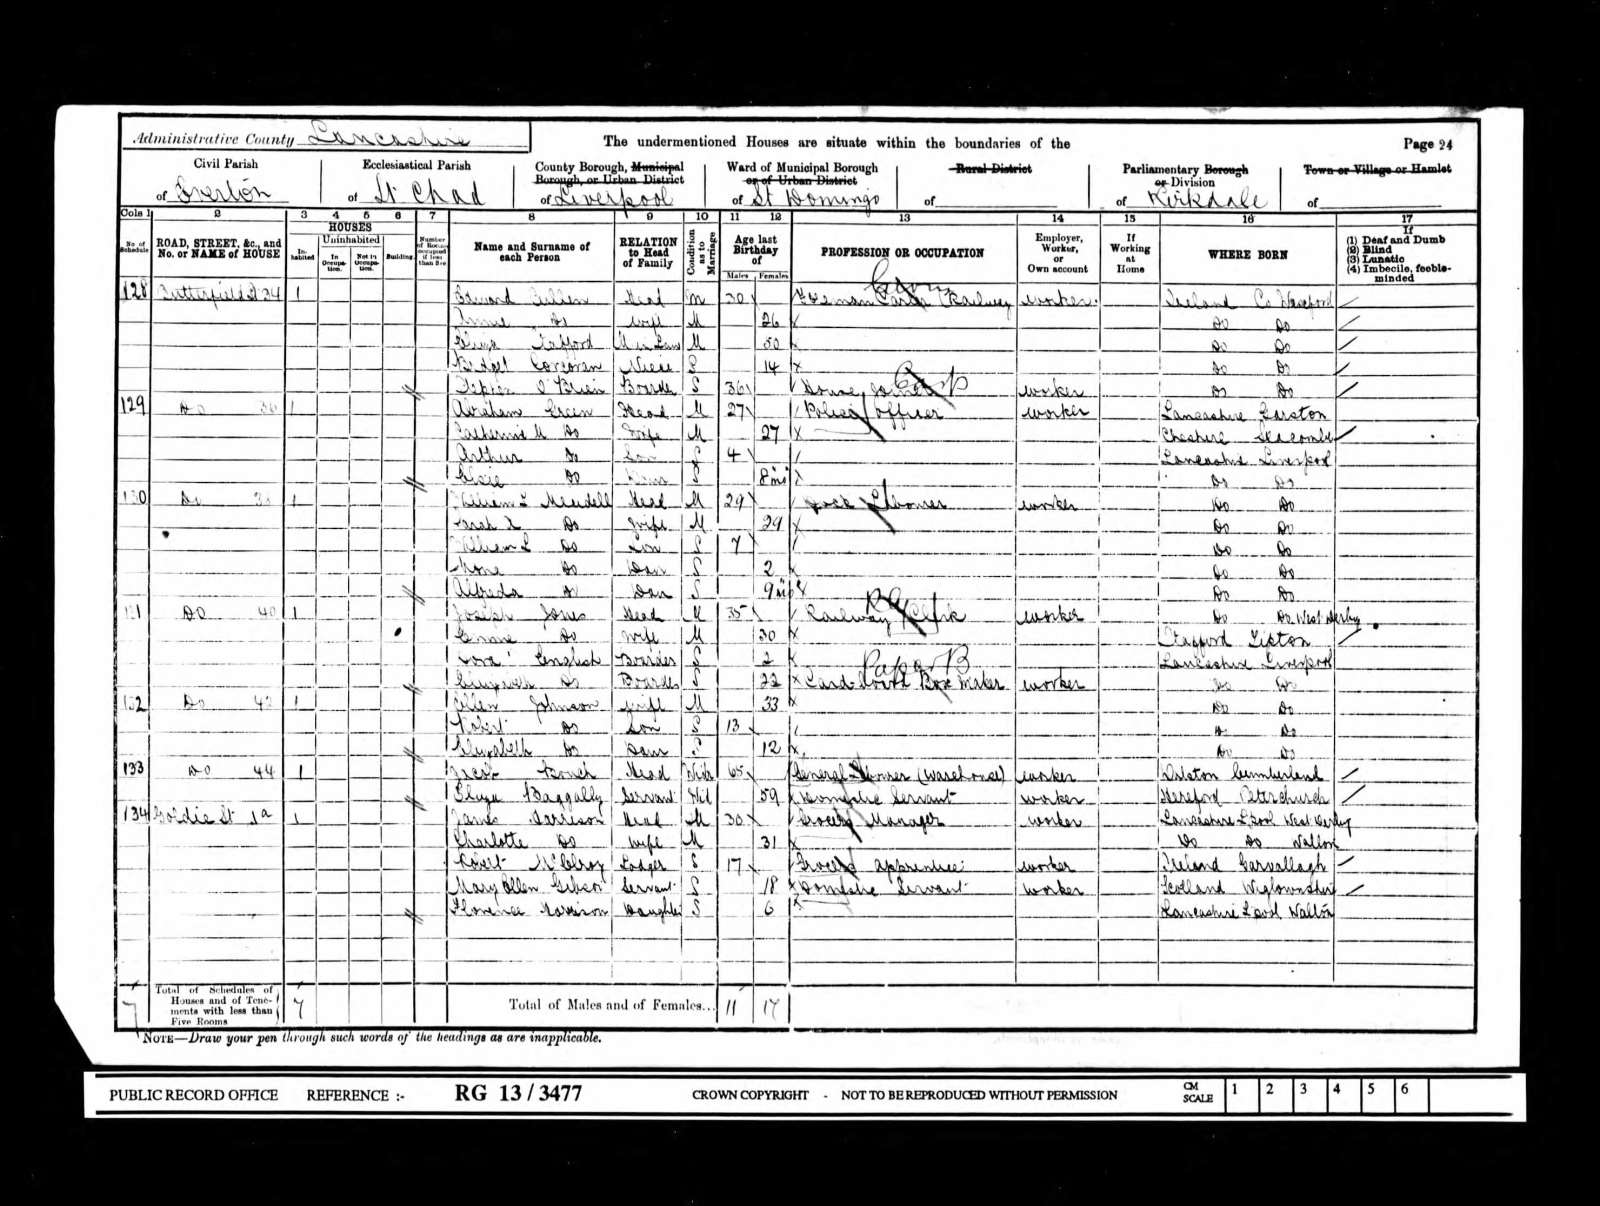 Administrative County Lancashire
The undermentioned Houses are situate within the boundaries of the
Page 24
Civil Parish of Everton
Ecclesiastical Parish of St Chad
County Borough, Municipal Borough, or Urban District of Liverpool
Ward of Municipal Borough or of Urban District of St Domingo
Rural District of
Parliamentary Borough or Division of Kirkdale
Town or Village or Hamlet of
Cols 1 2 3 4 5 6 7 8 9 10 11 12 13 14 15 16 17
No. of Schedule
ROAD, STREET, &c., and No. or NAME of HOUSE
HOUSES
Inhabited
Uninhabited
In Occupation.
Not in Occupation.
Building.
Number of Rooms occupied if less than five
Name and Surname of each Person
RELATION to Head of Family
Condition as to Marriage
Age last Birthday of
Males Females
PROFESSION OR OCCUPATION
Employer, Worker, or Own account
If Working at Home
WHERE BORN
If
(1) Deaf and Dumb
(2) Blind
(3) Lunatic
(4) Imbecile, feeble-minded
128 Butterfield St 34 1 Edward Cullen Head M 30 Carter (Railway worker Ireland Co
Annie Do Wife M 26 Do Do
Eliza M in Law M 50 Do Do
Bridget Corcoran Niece S 14 Do Do
O'Brien Boarder S 36 House Joiner worker Do Do
129 Do 36 1 Abraham Green Head M 27 Police Officer worker Lancashire Garston
Catherine M Do Wife M 27 Cheshire Seacombe
Arthur Do Son S 4 Lancashire Liverpool
Elsie Do S 8 mos Do Do
130 Do 38 1 William L Head M 29 Dock Labourer worker Do Do
Sarah Do Wife M 29 Do Do
William L Do Son S 7 Do Do
Do Daur S 2 Do Do
Alfreda Do Daur S 9 mos Do Do
131 Do 40 1 Joseph Jones Head M 35 Railway Clerk worker Do Do West Derby
Do Wife M 30 Stafford Tipton
Cora English Boarder S 2 Lancashire Liverpool
Paper B
Do Boarder S 22 Cardboard Box Maker worker Do Do
132 Do 42 1 Ellen Johnson Wife M 33 Do Do
Robert Do Son S 13 Do Do
Elizabeth Do Daur S 12 Do Do
133 Do 44 1 Jacob Head Widr 65 General Labourer (Warehouse) worker Dalston Cumberland
Eliza Baggally Servant Wid 59 Domestic Servant worker Hereford Peterchurch
134 Goldie St 1a 1 James Morrison Head M 30 Grocers Manager worker Lancashire L'pool West Derby
Charlotte Do Wife M 31 Do Do Walton
Robert McElroy Lodger S 17 Grocers Apprentice worker Ireland Garvallagh
Mary Ellen Gibson Servant S 18 Domestic Servant worker Scotland Wigtownshire
Florence Morrison Daughter S 6 Lancashire L'pool Walton
7 Total of Schedules of Houses and of Tenements with less than Five Rooms 7
Total of Males and of Females... 11 17
NOTE—Draw your pen through such words of the headings as are inapplicable.
PUBLIC RECORD OFFICE REFERENCE :- RG 13 / 3477 CROWN COPYRIGHT - NOT TO BE REPRODUCED WITHOUT PERMISSION CM SCALE 1 2 3 4 5 6